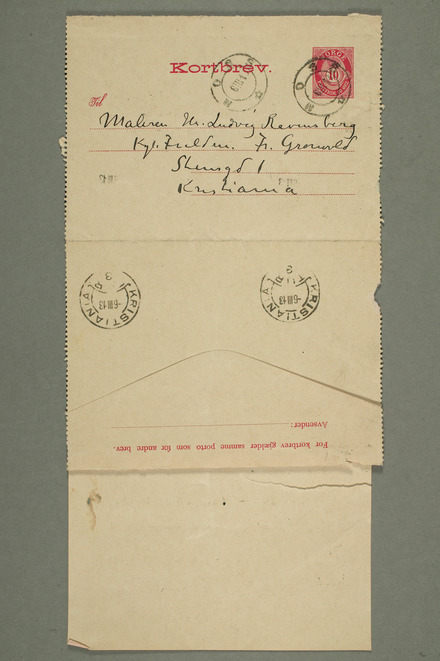 Kortbrev.
NORGE
10
MOSS
MOSS
Til
Maleren Hr. Ludvig Ravensberg
Kgl. Fuldm. Fr. Gronvold
Stensgd 1
Kristiania
KRISTIANIA
-6III13
3
KRISTIANIA
-6III13
3
Avsender:
For kortbrev gjælder samme porto som for andre brev.